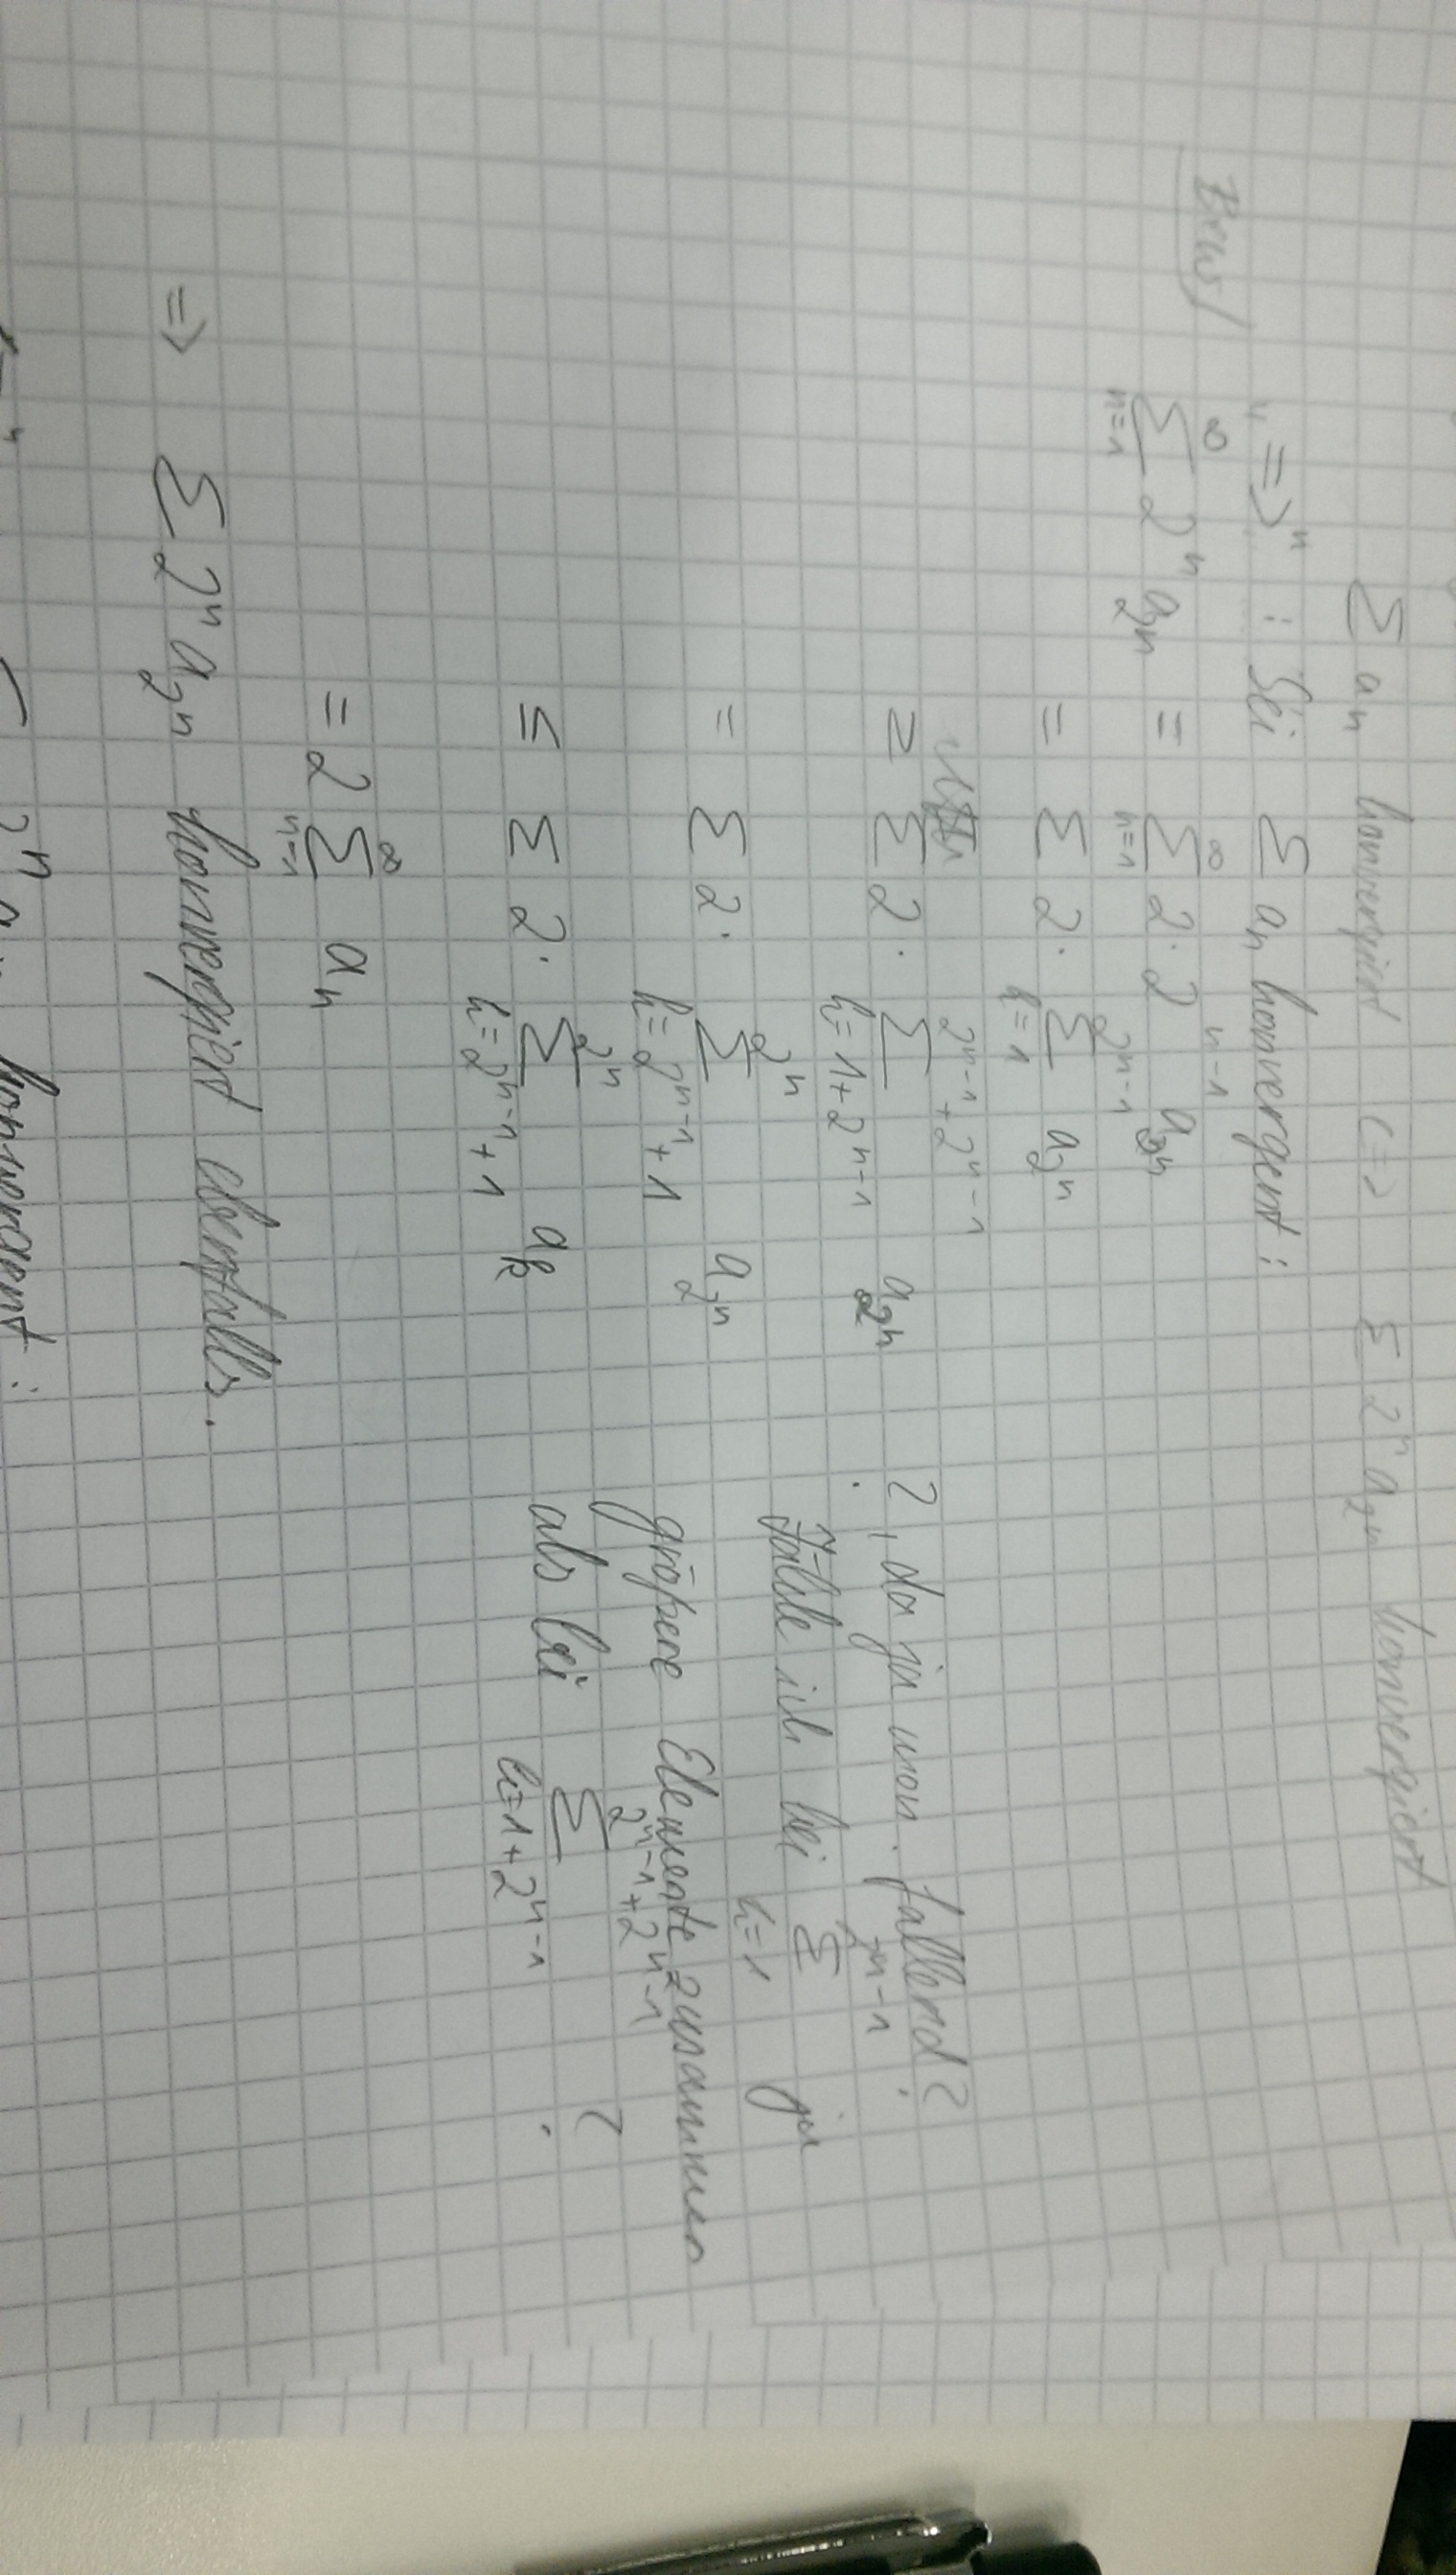 ∑ aₙ konvergiert <=> ∑ 2ⁿ a_{2ⁿ} konvergiert
Beweis "=>" : Sei ∑ aₙ konvergent :
∑_{n=1}^{∞} 2ⁿ a_{2ⁿ} = ∑_{n=1}^{∞} 2 · 2^{n-1} a_{2ⁿ}
= ∑ 2 · ∑_{k=1}^{2^{n-1}} a_{2ⁿ}
≥ ∑ 2 · ∑_{k=1+2^{n-1}}^{2^{n-1}+2^{n-1}} a_{2ⁿ} ?, da ja mon. fallend?
= ∑ 2 · ∑_{k=2^{n-1}+1}^{2ⁿ} a_{2ⁿ} Zähle ich bei ∑_{k=1}^{2^{n-1}} ja
größere Elemente zusammen
≤ ∑ 2 · ∑_{k=2^{n-1}+1}^{2ⁿ} a_k als bei ∑_{k=1+2^{n-1}}^{2^{n-1}+2^{n-1}} ?
= 2 ∑_{n=1}^{∞} aₙ
=> ∑ 2ⁿ a_{2ⁿ} konvergiert ebenfalls.
2ⁿ a konvergent :